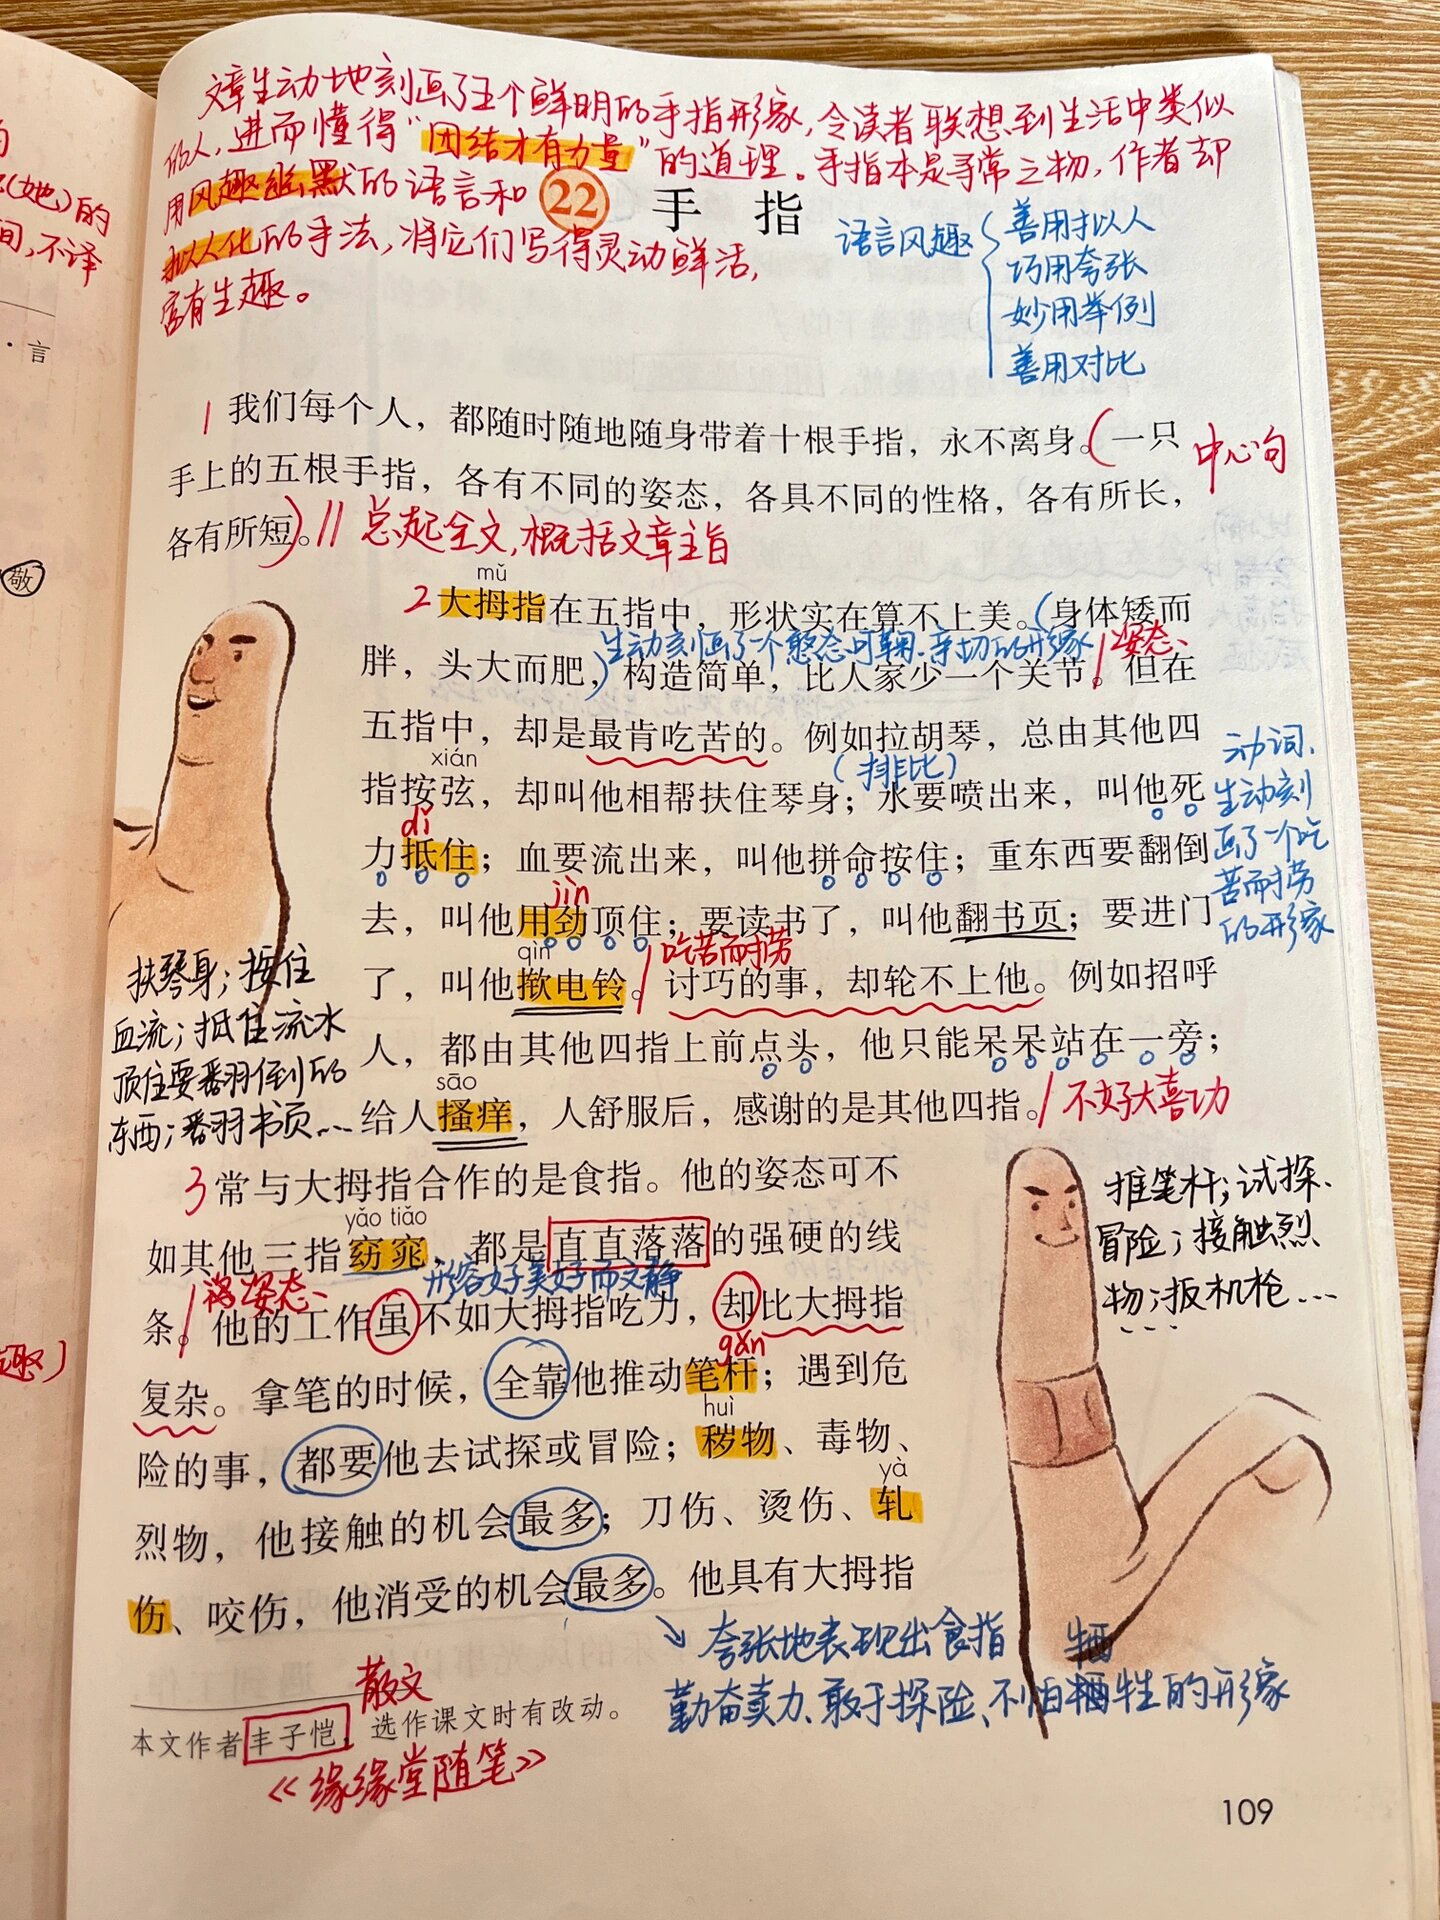 文章生动地刻画了五个鲜明的手指形象,令读者联想到生活中类似
的人,进而懂得“团结才有力量”的道理。手指本是寻常之物,作者却
用风趣幽默的语言和
拟人化的手法,将它们写得灵动鲜活,
富有生趣。
22 手 指
语言风趣
善用拟人
巧用夸张
妙用举例
善用对比
(她)的
间,不译
·言
敬
趣)
1 我们每个人,都随时随地随身带着十根手指,永不离身。(一只
中心句
手上的五根手指,各有不同的姿态,各具不同的性格,各有所长,
各有所短)。// 总起全文,概括文章主旨
mǔ
2 大拇指在五指中,形状实在算不上美。(身体矮而
生动刻画了一个憨态可鞠、亲切的形象
姿态、
胖,头大而肥,)构造简单,比人家少一个关节。但在
五指中,却是最肯吃苦的。例如拉胡琴,总由其他四
xián
(排比)
指按弦,却叫他相帮扶住琴身;水要喷出来,叫他死
dǐ
力抵住;血要流出来,叫他拼命按住;重东西要翻倒
jìn
去,叫他用劲顶住;要读书了,叫他翻书页;要进门
qìn
吃苦而捞
了,叫他揿电铃。讨巧的事,却轮不上他。例如招呼
人,都由其他四指上前点头,他只能呆呆站在一旁;
sāo
给人搔痒,人舒服后,感谢的是其他四指。/不好大喜功
动词、
生动刻
画了一个吃
苦而捞
的形象
扶琴身;按住
血流;抵住流水
顶住要翻倒的
东西;翻书页……
3 常与大拇指合作的是食指。他的姿态可不
yǎo tiǎo
如其他三指窈窕,都是直直落落的强硬的线
形容好美好而文静
姿态、
条。他的工作虽不如大拇指吃力,却比大拇指
gǎn
复杂。拿笔的时候,全靠他推动笔杆;遇到危
huì
险的事,都要他去试探或冒险;秽物、毒物、
yà
烈物,他接触的机会最多;刀伤、烫伤、轧
伤、咬伤,他消受的机会最多。他具有大拇指
推笔杆;试探、
冒险;接触烈
物;扳机枪……
夸张地表现出食指
牺
勤奋卖力、敢于探险、不怕牺牲的形象
散文
本文作者丰子恺,选作课文时有改动。
《缘缘堂随笔》
109